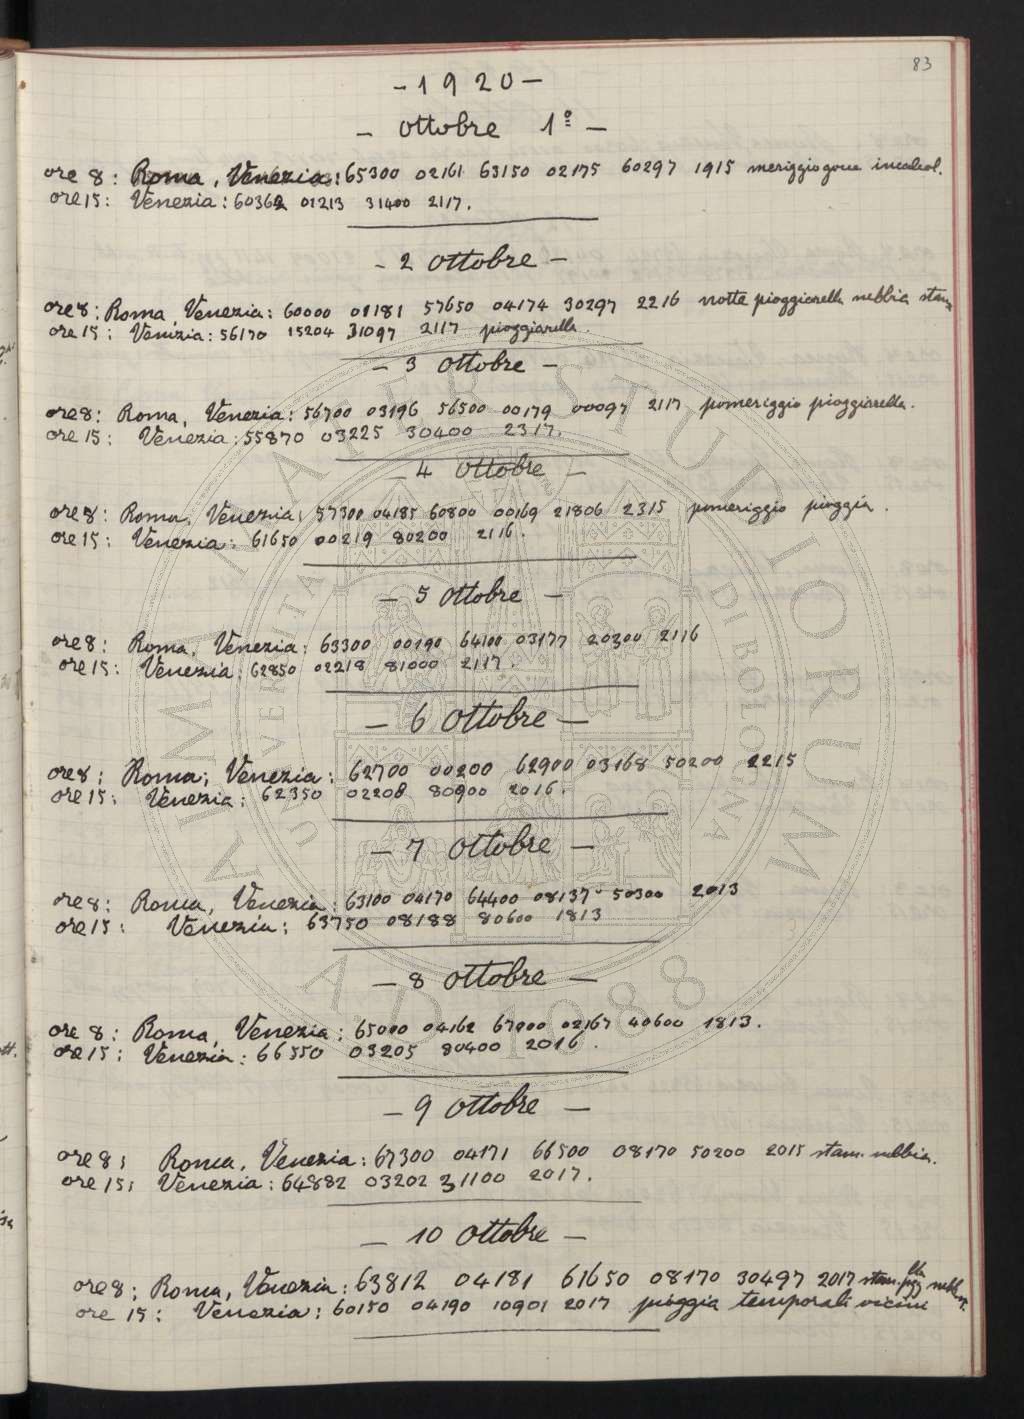 83
- 1920 -
- Ottobre 1º -
ore 8: Roma, Venezia: 65300 02161 63150 02175 60297 1915 meriggio gocce
ore 15: Venezia: 60362 01213 31400 2117.
- 2 Ottobre -
ore 8: Roma, Venezia: 60000 01181 57650 04174 30297 2216 notte pioggiarella nebbia
ore 15: Venezia: 56170 15204 31097 2117 pioggiarella.
- 3 Ottobre -
ore 8: Roma, Venezia: 56700 03196 56500 00179 00097 2117 pomeriggio pioggiarella.
ore 15: Venezia: 55870 03225 30400 2317.
- 4 Ottobre -
ore 8: Roma, Venezia: 57300 04185 60800 00169 21806 2315 pomeriggio pioggia.
ore 15: Venezia: 61650 00219 80200 2116.
- 5 Ottobre -
ore 8: Roma, Venezia: 63300 00190 64100 03177 20300 2116
ore 15: Venezia: 62850 02218 81000 2117.
- 6 Ottobre -
ore 8: Roma, Venezia: 62700 00200 62900 03168 50200 2215
ore 15: Venezia: 62350 02208 80900 2016.
- 7 Ottobre -
ore 8: Roma, Venezia: 63100 04170 64400 08137 50300 2013
ore 15: Venezia: 63750 08188 80600 1813
- 8 Ottobre -
ore 8: Roma, Venezia: 65000 04162 67000 02167 40600 1813.
ore 15: Venezia: 66550 03205 80400 2016.
- 9 Ottobre -
ore 8: Roma, Venezia: 67300 04171 66500 08170 50200 2015 stam. nebbia.
ore 15: Venezia: 64882 03202 31100 2017.
- 10 Ottobre -
ore 8: Roma, Venezia: 63812 04181 61650 08170 30497 2017 stam.
ore 15: Venezia: 60150 04190 10901 2017 pioggia temporali vicini
ALMA MATER STUDIORUM
A.D. 1088
UNIVERSITÀ DI BOLOGNA